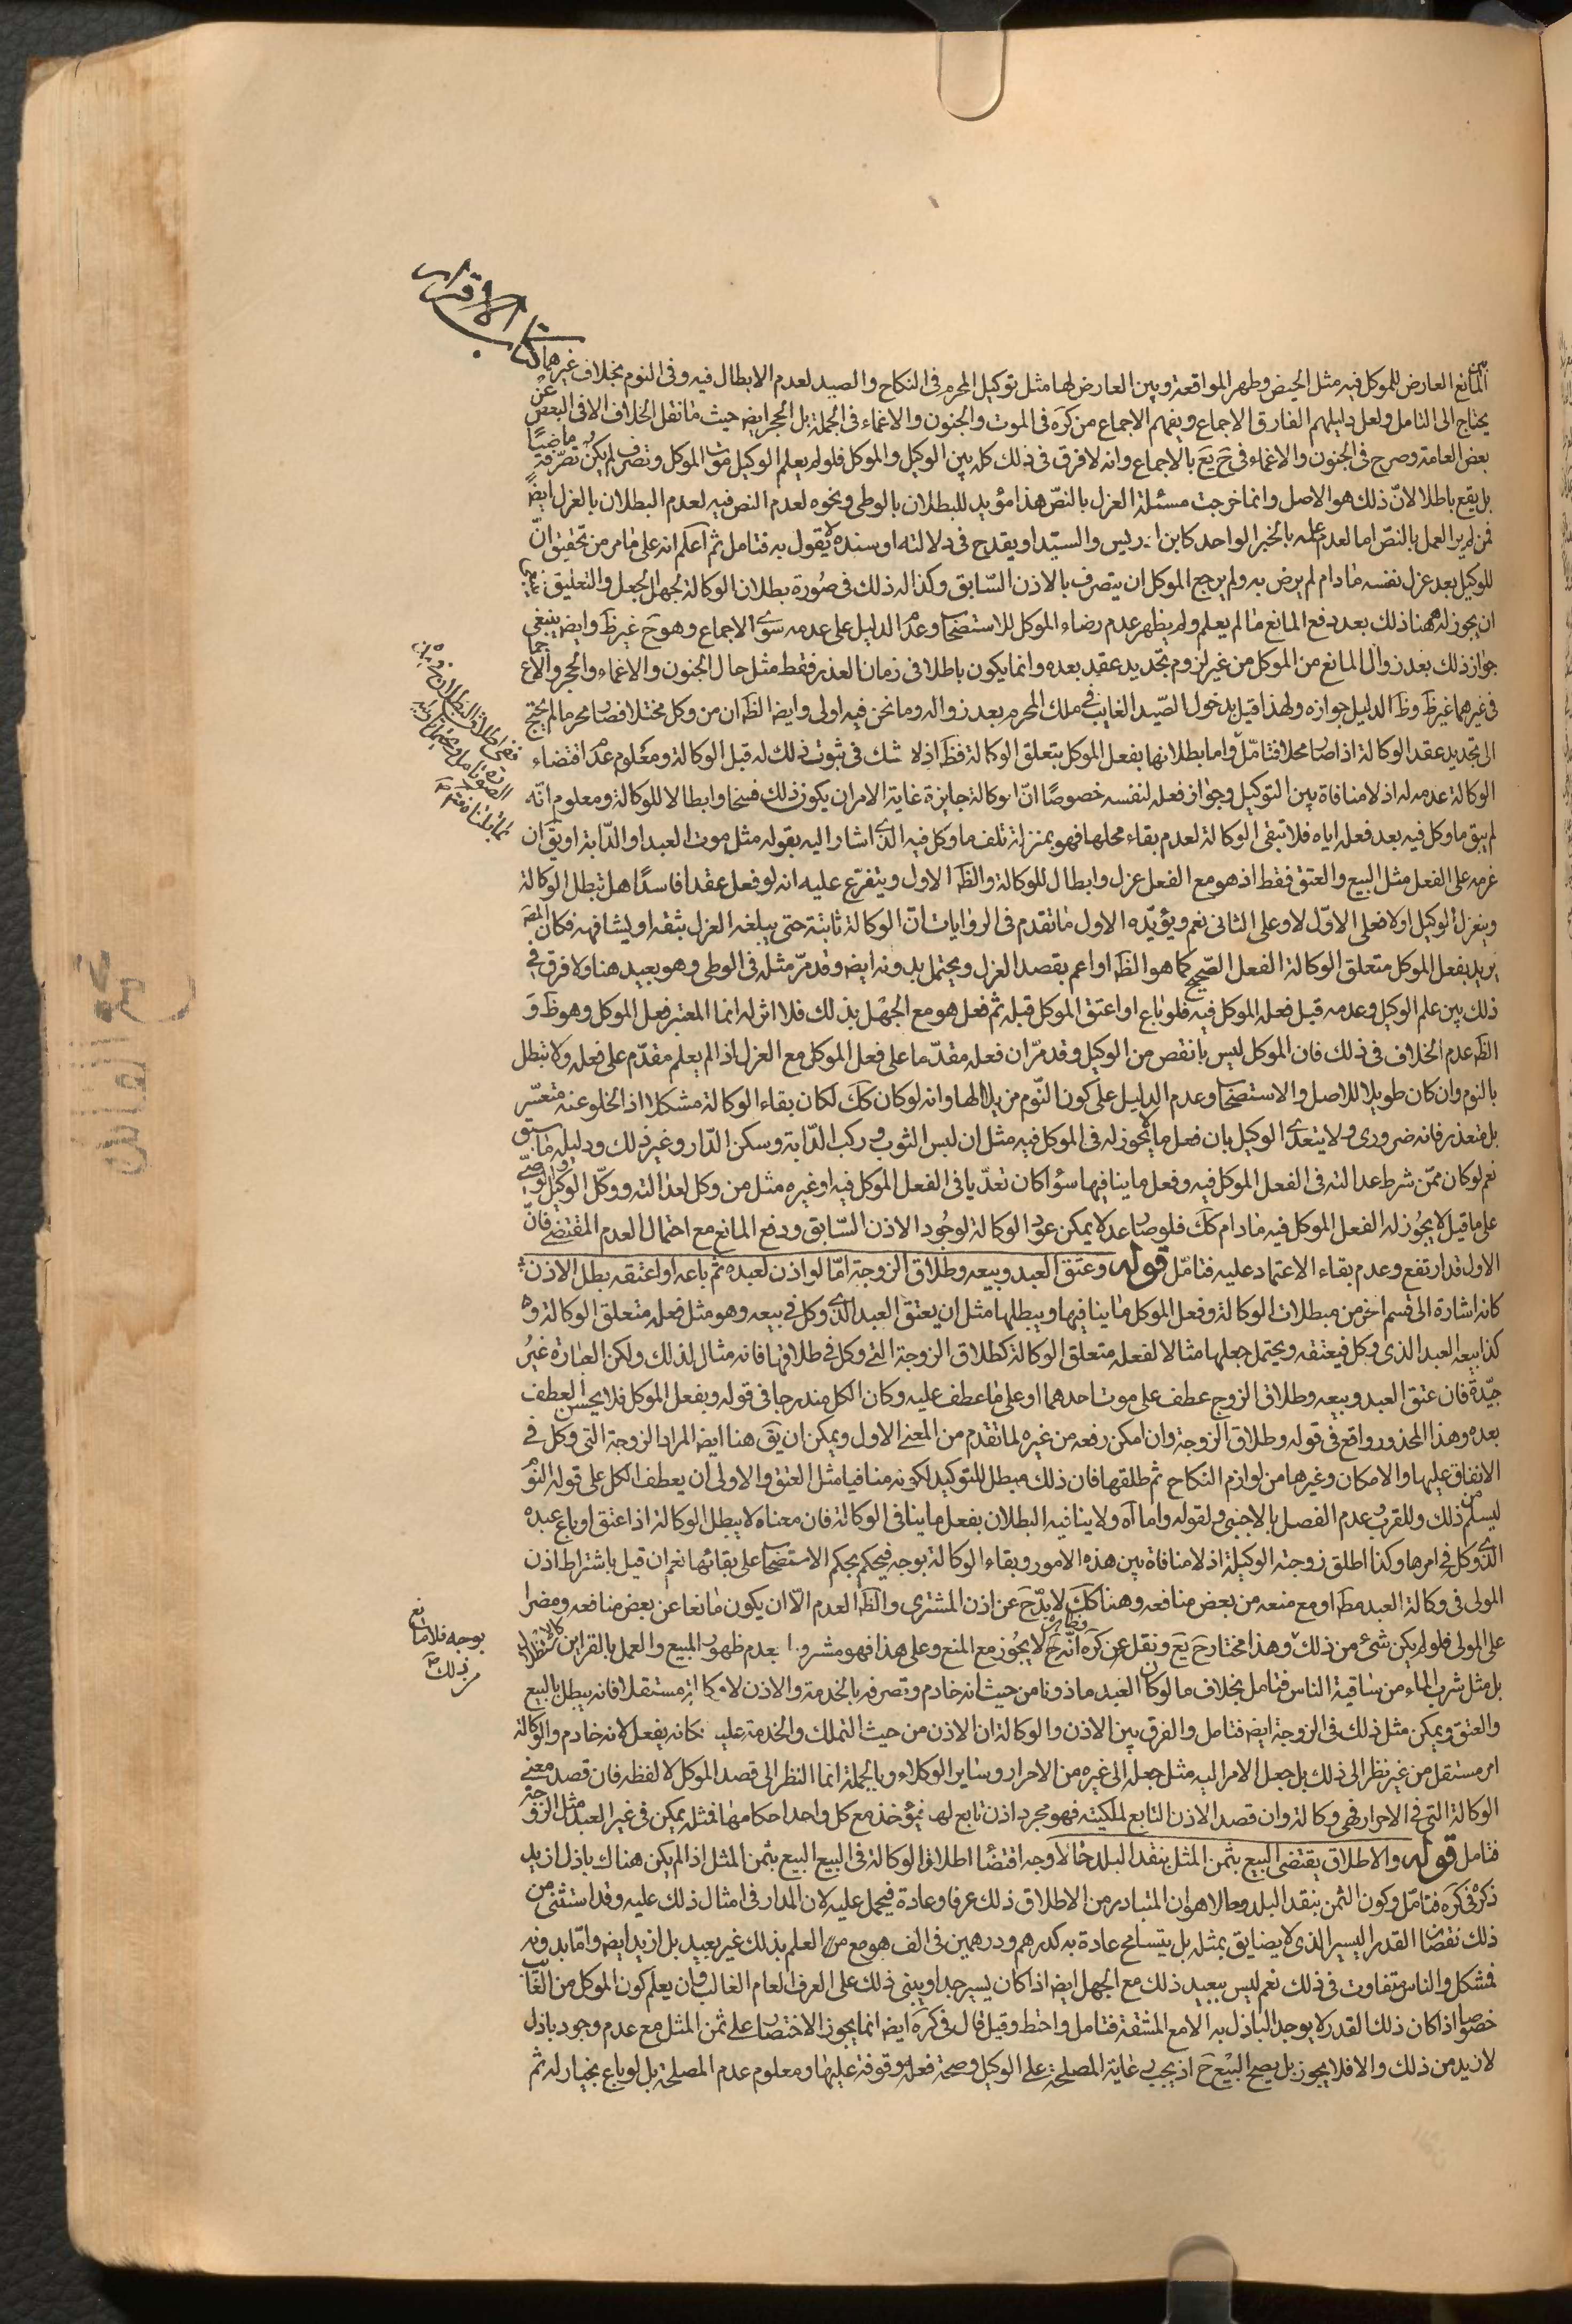 كتاب الاقرار
المانع العارض للموكل فيه مثل الحيض وطهر المواقعة وبين العارض لها مثل توكيل المحرم في النكاح والصيد لعدم الابطال فيه وفى النوم بخلاف غيرهما
يحتاج الى التامل ولعل دليلهم الفارق الاجماع ويفهم الاجماع من كره فى الموت والجنون والاغماء فى الجملة بل الحجر ايض حيث ما نقل الخلاف الا فى البعض عن
بعض العامة وصرح فى الجنون والاغماء فى ح يع بالاجماع وانه لا فرق فى ذلك كله بين الوكيل والموكل فلو لم يعلم الوكيل موت الموكل وتصرف لم يكن تصرفه ماضيا
بل يقع باطلا لانّ ذلك هو الاصل وانما خرجت مسئلة العزل بالنصّ هذا مؤيد للبطلان بالوطى ونحوه لعدم النص فيه لعدم البطلان بالعزل ايضً
فمن لم ير العمل بالنصّ اما لعدم عمله بالخبر الواحد كابن ادريس والسيّد او يقدح فى دلالته او سنده لا يقول به فتامل ثم اعلم انه على ما مر من تحقيق انّ
للوكيل بعد عزل نفسه ما دام لم يرض به ولم يرجع الموكل ان يتصرف بالاذن السّابق وكذا له ذلك فى صُورة بطلان الوكالة لجهل الجعل والتعليق
ان يجوز له ههنا ذلك بعد رفع المانع ما لم يعلم ولم يظهر عدم رضاء الموكل للاستصحاب وعدم الدليل على عدمه سوى الاجماع وهو ح غير ظَ وايض ينبغى
جواز ذلك بعد زوال المانع من الموكل من غير لزوم تجديد عقد بعده وانما يكون باطلا فى زمان العذر فقط مثل حال الجنون والاغماء والحجر
فى غيرهما غير ظَ وظَ الدليل جوازه ولهذا قيل بدخول الصّيد الغايب فى ملك المحرم بعد زواله وما نحن فيه اولى وايض الظَ ان من وكل مختلا فصار محرما لم يحتج
الى تجديد عقد الوكالة اذا صار محلا فتامّل واما بطلانها بفعل الموكل بتعلق الوكالة فظَ اذ لا شك فى ثبوت ذلك له قبل الوكالة ومعلوم عدم اقتضاء
الوكالة عدمه له اذ لا منافاة بين التوكيل وجواز فعله لنفسه خصوصًا انّ الوكالة جايزة غاية الامر ان يكون ذلك فسخا وابطالا للوكالة ومعلوم انّه
لم يبق ما وكل فيه بعد فعله اياه فلا تبقى الوكالة لعدم بقاء محلها فهو بمنزلة تلف ما وكل فيه الذى اشار اليه بقوله مثل موت العبد او الدّابة او يقَ ان
عزمه على الفعل مثل البيع والعتق فقط اذ هو مع الفعل عزل وابطال للوكالة والظَ الاول ويتفرع عليه انه لو فعل عقدا فاسدًا هل تبطل الوكالة
وينعزل الوكيل او لا فعلى الاوّل لا وعلى الثانى نعم ويؤيّده الاول ما تقدم فى الروايات انّ الوكالة ثابتة حتى يبلغه العزل بثقة او يشافهه فكان المصَ
يريد بفعل الموكل متعلق الوكالة الفعل الصّحيح كما هو الظَ او اعم بقصد العزل ويحتمل بدونه ايض وقد مرّ مثله فى الوطى وهو بعيد هنا ولا فرق فى
ذلك بين علم الوكيل وعدمه قبل فعله الموكل فيه فلو باع او اعتق الموكل قبله ثم فعل هو مع الجهل بذلك فلا اثر له انما المعتبر فعل الموكل وهو ظَ وَ
الظَ عدم الخلاف فى ذلك فان الموكل ليس بانقص من الوكيل وقد مرّ ان فعله مقدّما على فعل الموكل مع العزل اذا لم يعلم مقدّم على فعله ولا تبطل
بالنوم وان كان طويلا للاصل والاستصحاب وعدم الدليل على كون النّوم مزيلا لها وانه لو كان كك لكان بقاء الوكالة مشكلا اذ الخلو عنه متعسّر
بل متعذر فانه ضرورى ولا يتعدى الوكيل بان فعل ما لا يجوز له فى الموكل فيه مثل ان لبس الثوب وركب الدّابة وسكن الدّار وغير ذلك ودليله ما سبق
نعم لو كان ممّن شرط عدالته فى الفعل الموكل فيه وفعل ما ينافيها سواء كان تعدّيا فى الفعل الموكل فيه او غيره مثل من وكل لعدالته ووكّل الوكيل
على ما قيل لا يجوز له الفعل الموكل فيه ما دام كك فلو صار عدلا يمكن عود الوكالة لوجود الاذن السّابق ورفع المانع مع احتمال العدم المقتضى فانّ
الاول قد ارتفع وعدم بقاء الاعتماد عليه فتامّل قوله وعتق العبد وبيعه وطلاق الزوجة امّا لو اذن لعبده ثم باعه او اعتقه بطل الاذن
كانه اشارة الى قسم اخر من مبطلات الوكالة وفعل الموكل ما ينافيها ويبطلها مثل ان يعتق العبد الذى وكل فى بيعه وهو مثل فعله متعلق الوكالة و
كذا بيعه العبد الذى وكل فيعتقه ويحتمل جعلها مثالا لفعله متعلق الوكالة كطلاق الزوجة التى وكل فى طلاقها فانه مثال لذلك ولكن العبارة غير
جيّدة فان عتق العبد وبيعه وطلاق الزوج عطف على موت احدهما او على ما عطف عليه وكان الكل مندرجا فى قوله وبفعل الموكل فلا يحسن العطف
بعده وهذا المحذور واقع فى قوله وطلاق الزوجة وان امكن رفعه من غيره لما تقدم من المعنى الاول ويمكن ان يقَ هنا ايض المراد الزوجة التى وكل فى
الانفاق عليها والاسكان وغيرها من لوازم النكاح ثم طلقها فان ذلك مبطل للتوكيل لكونه منافيا مثل العتق والاولى ان يعطف الكل على قوله النوم
ليسلم من ذلك وللقرب وعدم الفصل بالاجنبى ولقوله واما آه ولا ينافيه البطلان بفعل ما ينافى الوكالة فان معناه لا يبطل الوكالة اذا اعتق او باع عبده
الذى وكل فى امرها وكذا اطلق زوجته الوكيلة اذ لا منافاة بين هذه الامور وبقاء الوكالة بوجه فيحكم بحكم الاستصحاب على بقائها نعم ان قيل باشتراط اذن
المولى فى وكالة العبد مطَ او مع منعه من بعض منافعه وهنا كك لا بدّ ح عن اذن المشترى والظَ العدم الّا ان يكون مانعا عن بعض منافعه ومضرا
على المولى فلو لم يكن شئ من ذلك وهذا مختار ح يع ونقل عن كره انّه ح لا يجوز مع المنع وعلى هذا فهو مشروط بعدم ظهور المبيع والعمل بالقراين
بل مثل شرب الماء من ساقية الناس فتامل بخلاف ما لو كان العبد ماذونا من حيث انه خادم وتصرفه بالخدمة والاذن لا وكالة مستقلا فانه يبطل بالبيع
والعتق ويمكن مثل ذلك فى الزوجة ايض فتامل والفرق بين الاذن والوكالة ان الاذن من حيث التملك والخدمة عليه فكانه يفعل لانه خادم والوكالة
امر مستقل من غير نظر الى ذلك بل جعل الامر اليه مثل جعله الى غيره من الاحرار وساير الوكلاء وبالجملة انما النظر الى قصد الموكل لا لفظه فان قصد معنى
الوكالة التى فى الاحرار فهى وكالة وان قصد الاذن التابع لملكيته فهو مجرد اذن تابع لها فيؤخذ مع كل واحد احكامها فمثله يمكن فى غير العبد مثل الزوجة
فتامل قوله والاطلاق يقتضى البيع بثمن المثل بنقد البلد حالا وجه اقتضاء اطلاق الوكالة فى البيع البيع بثمن المثل اذا لم يكن هناك باذل ازيد
ذكره فى كره فتامّل وكون الثمن بنقد البلد وحالا هو ان المتبادر من الاطلاق ذلك عرفا وعادة فيحمل عليه لان المدار فى امثال ذلك عليه وقد استثنى من
ذلك نقصان القدر اليسير الذى لا يضايق بمثله بل يتسامح عادة به كدرهم ودرهمين فى الف هو مع العلم بذلك غير بعيد بل ازيد ايض وامّا بدونه
فمشكل والناس متفاوت فى ذلك نعم ليس ببعيد ذلك مع الجهل ايض اذا كان يسير جدا ويبنى ذلك على العرف العام الغالب وان يعلم كون الموكل من
خصوصا اذا كان ذلك القدر لا يوجد الباذل به الا مع المشقة فتامل واحتط وقيل قال فى كره ايض انما يجوز الاختصار على ثمن المثل مع عدم وجود باذل
لازيد من ذلك والا فلا يجوز بل يصح البيع ح اذ يجب رعاية المصلحة على الوكيل وصحة فعله موقوفة عليها ومعلوم عدم المصلحة بل لو باع بخيار له ثم
بوجه فلا مانع
من ذلك